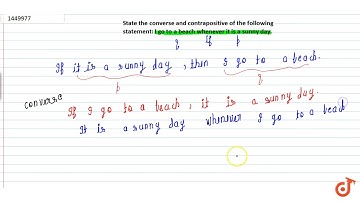 1449977
State the converse and contrapositive of the following
statement: I go to a beach whenever it is a sunny day.
q if p
If it is a sunny day, then I go to a beach.
p q
converse
If I go to a beach, it is a sunny day.
It is a sunny day whenever I go to a beach